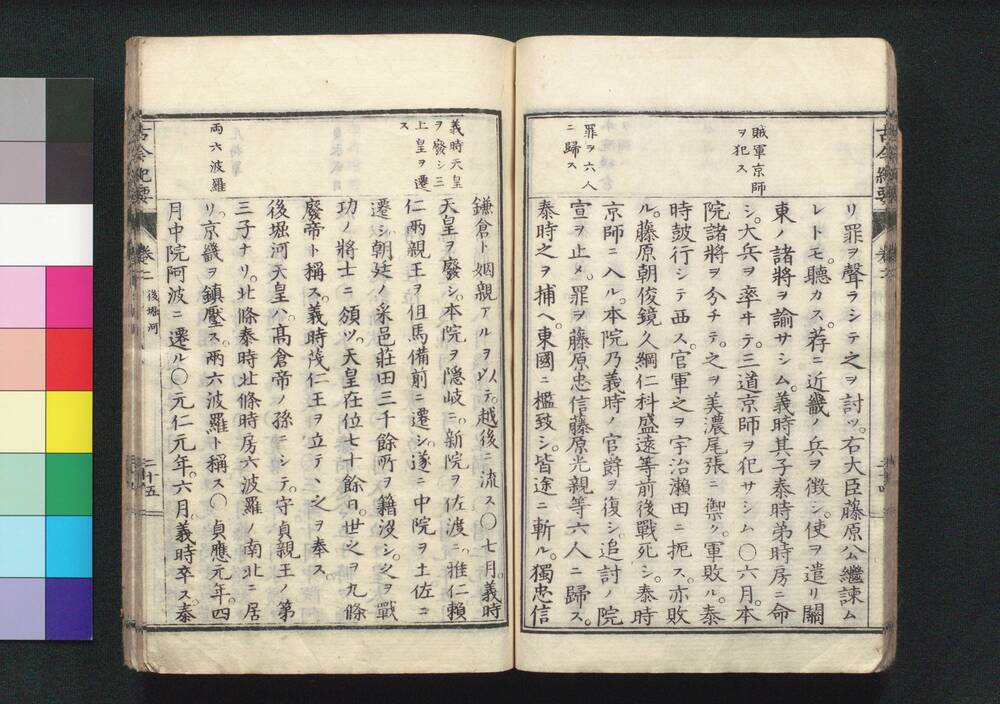 古今紀要
賊軍京師
ヲ犯ス
罪ヲ六人
ニ歸ス
リ罪ヲ聲ラシテ之ヲ討ツ。右大臣藤原公繼諫ム
レトモ。聽カス。荐ニ近畿ノ兵ヲ徴シ。使ヲ遣リ關
東ノ諸將ヲ諭サシム。義時其子泰時弟時房ニ命
シ。大兵ヲ率ヰテ。三道京師ヲ犯サシム〇六月。本
院諸將ヲ分チテ。之ヲ美濃尾張ニ禦ク。軍敗ル。泰
時鼓行シテ西ス。官軍之ヲ宇治瀬田ニ扼ス。亦敗
ル。藤原朝俊鏡久綱仁科盛遠等前後戰死シ。泰時
京師ニ入ル。本院乃義時ノ官爵ヲ復シ。追討ノ院
宣ヲ止メ。罪ヲ藤原忠信藤原光親等六人ニ歸ス。
泰時之ヲ捕ヘ。東國ニ檻致シ。皆途ニ斬ル。獨忠信
義時天皇
ヲ廢シ三
上皇ヲ遷
ス
兩六波羅
鎌倉ト姻親アルヲ以テ。越後ニ流ス〇七月。義時
天皇ヲ廢シ。本院ヲ隱岐ニ。新院ヲ佐渡ニ。雅仁頼
仁兩親王ヲ但馬備前ニ遷シ。遂ニ中院ヲ土佐ニ
遷シ。朝廷ノ采邑莊田三千餘所ヲ籍沒シ。之ヲ戰
功ノ將士ニ頒ツ。天皇在位七十餘日。世之ヲ九條
廢帝ト稱ス。義時茂仁王ヲ立テヽ之ヲ奉ス。
後堀河天皇ハ。高倉帝ノ孫ニシテ。守貞親王ノ第
三子ナリ。北條泰時北條時房六波羅ノ南北ニ居
リ。京畿ヲ鎮壓ス。兩六波羅ト稱ス〇貞應元年。四
月中院阿波ニ遷ル〇元仁元年。六月。義時卒ス。泰
古今紀要
卷二
後堀河
二十五